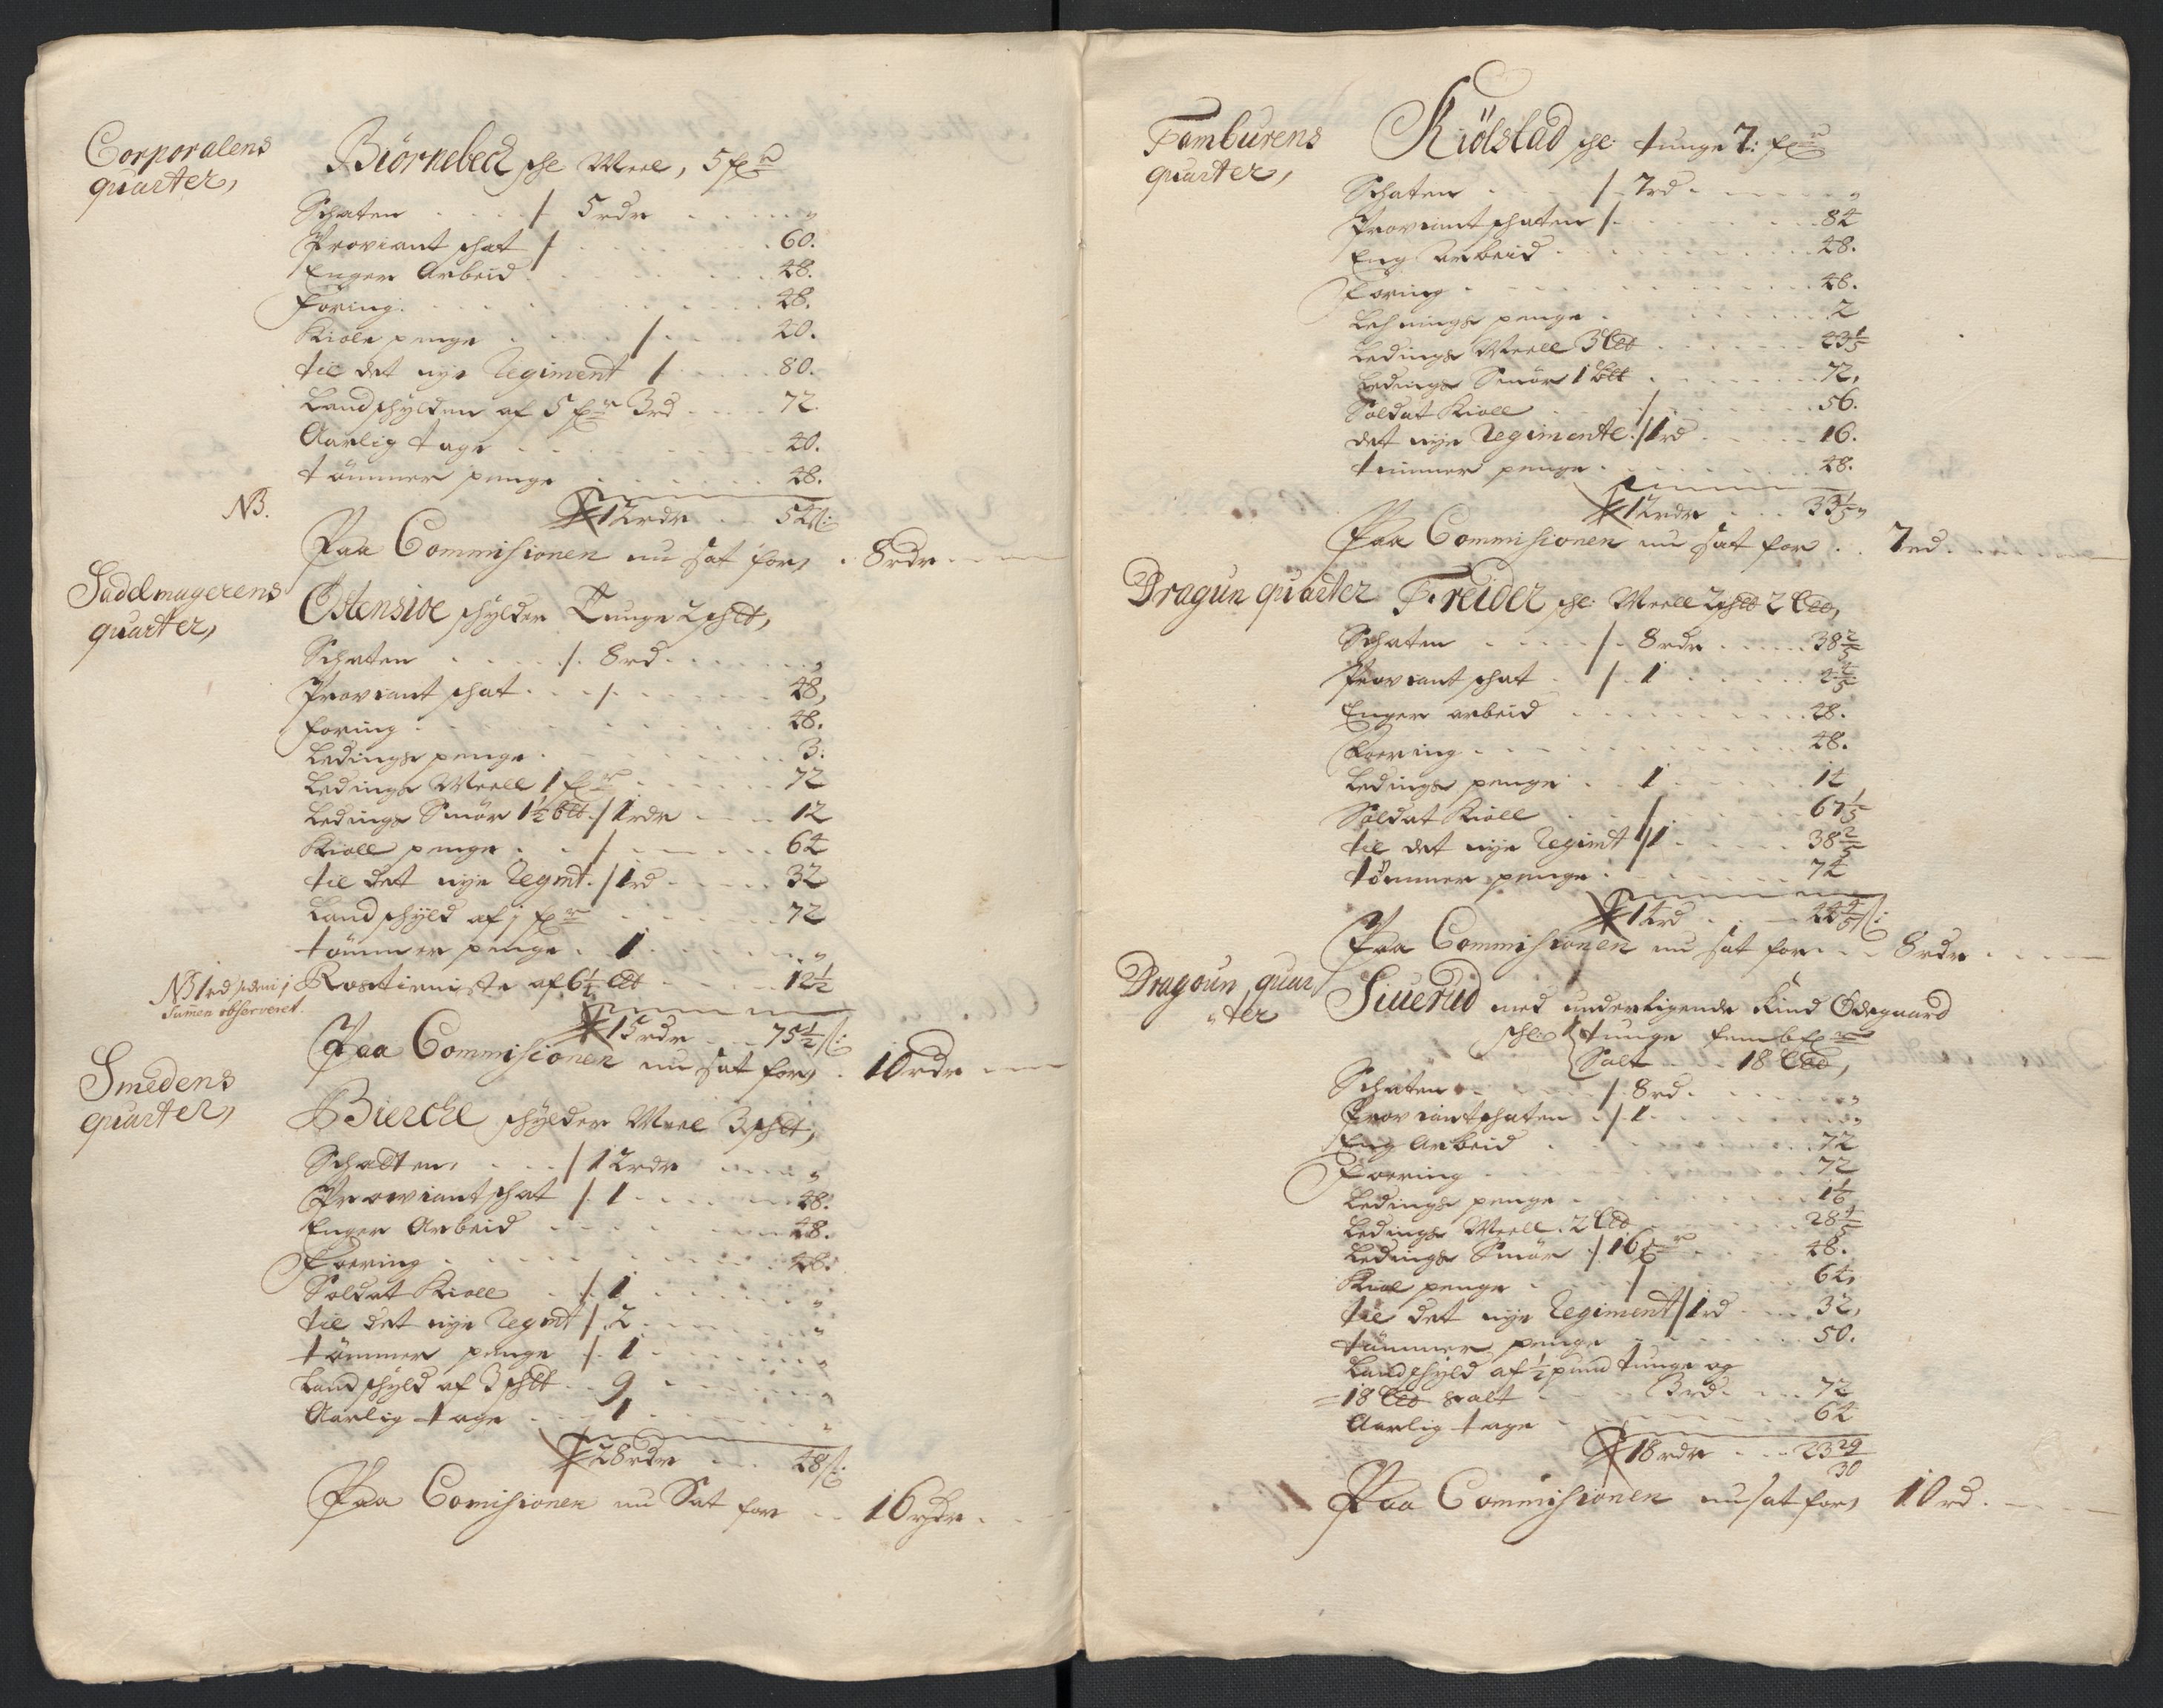 Corporalens
quarter,
Biörnebeck schl Meel, 5 fr
Schaten . . . . / 5 rdr . . . . "
Proviant schat / . . . . 60.
Enger Arbeid . . . . 48.
foring . . . . 48.
Kiole penge . . . / . . . 40.
til det nye Regiment / . . . 80.
Landschylden af 5 fr 3 rd . . . 72.
Aarlig tage . . . . 40.
tømmer penge . . . . 48.
NB.
12 rdr . . 54 s:
Paa Commisionen nu sat for, . 8 rdr
Sadelmagerens
quarter,
Ostensioe schylder Tunge 2 schtt,
Schaten . . . . /. 8 rd . . . . "
Proviant schat . . . /. . . . 48,
foring . . . . 48.
Ledings penge . . . . 3:
Ledings Meell 1 fr . . . . 72
Ledings Smör 1½ btt. / 1 rdr . . . 12
Kioll penge . . . / . . . 64
til det nye Regmt. / 1 rd . . . 32
Landschyld af 1 fr . . . . 72
tømmer penge . . 1 . . . . "
NB 1 rd
Sumen observeret.
Rostieniste af 6¼ Ltt . . . 12½
15 rdr . . 75½ s:
Paa Commisionen nu sat for, . 10 rdr
Smedens
quarter,
Biercke schylder Meel 3 schtt,
Schatten . . . / 12 rdr . . . "
Proviant schat / . 1 . . . . 48.
Enger Arbeid . . . . 48.
Foering . . . . 48.
Soldat Kioll . /. 1 . . . . "
til det nye Regmt / . 2 . . . . "
tømmer penge / . 1 . . . . "
Landschyld af 3 schtt . . 9 . . . . "
Aarlig tage . . . 1 . . . . "
28 rdr . . . 48 s:
Paa Comisionen nu Sat for . . 16 rdr
Tamburens
quarter,
Kiölstad schl: tunge 7: fr
Schaten . . . . / 7 rd . . . . "
Proviant schaten / . . . . 84
Eng arbeid . . . . 48.
Foring . . . . 48.
Lehnings penge . . . . 2
Ledings Meell 3 Ltt . . . . 43⅕
Ledings Smör 1 btt . . . . 72,
Soldat Kioll . . . / . . . 56.
det nye Regimente. / 1 rd . . . 16.
tømmer penge . . . . 48.
12 rdr . . . 33⅕ "
Paa Commisionen nu sat for . . 7 rd.
Dragun quarter Freider schl: Meell 2 schtt 2 Ltt,
Schaten . . . . /. 8 rdr . . . 38⅖
Proviant schat . / . 1 . . . . 2⅖
Enger arbeid . . . . 48.
foering . . . . 48.
Ledings penge . . . 1 . . . 14
Soldat Kioll . . . / . . . 67⅕
til det nye Regimt / 1 . . . 38⅖
tømmer penge . . . . 74
14 rd . . . 44⅘ s:
Paa Commisionen nu sat for . . 8 rdr
Dragoun quar
ter
Siuerud med underligende Kind Ødegaard
schl: tunge
Salt . . . 18 Ltt,
Schaten . . . . /. 8 rd . . . . "
Proviantschaten . /. 1 . . . . "
Eng Arbeid . . . . 72
Foering . . . . 72
Ledings penge . . . . 1⅙
Ledings Meell. 2 Ltt . . . 28⅘
Ledings Smör . / 16 . . . 48.
Kiol penge . . . / . . . 64,
til det nye Regiment / 1 rd . . . 32,
tømmer penge . . . . 50.
Landschyld af ½ pund tunge og
= 18 Ltt salt . . . 3 rd . . . 72
Aarlig tage . . . . 64
18 rdr . . . 23 29/30
Paa Commisionen nu sat for, 10 rd.